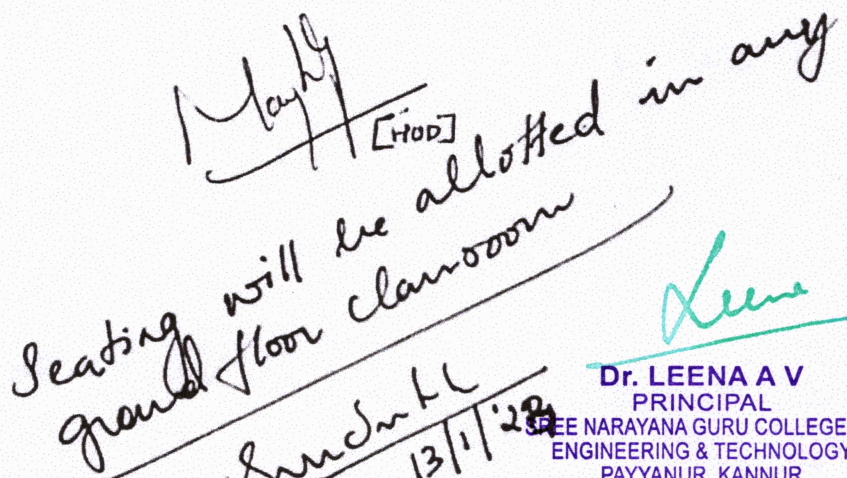 [HOD]
Seating will be allotted in any
ground floor classroom
13/1/'25
Leena
Dr. LEENA A V
PRINCIPAL
SREE NARAYANA GURU COLLEGE
ENGINEERING & TECHNOLOGY
PAYYANUR, KANNUR